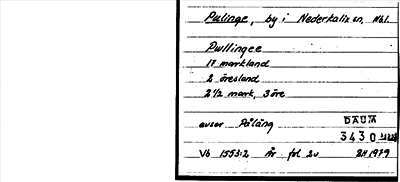 Pålinge, by i Nederkalix sn, Nbl.
Pwllingee
17 markland
2 öresland
2 1/2 mark, 3 öre
avser Påläng
DAUM
3430
Vb 1553:2 År fol 2v BH 1979